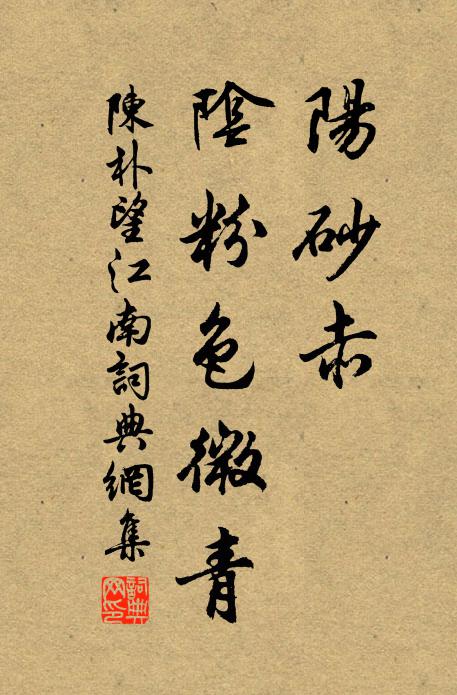 陽砂赤
陰粉色微青
陳朴望江南詞典網集
詞典
网印